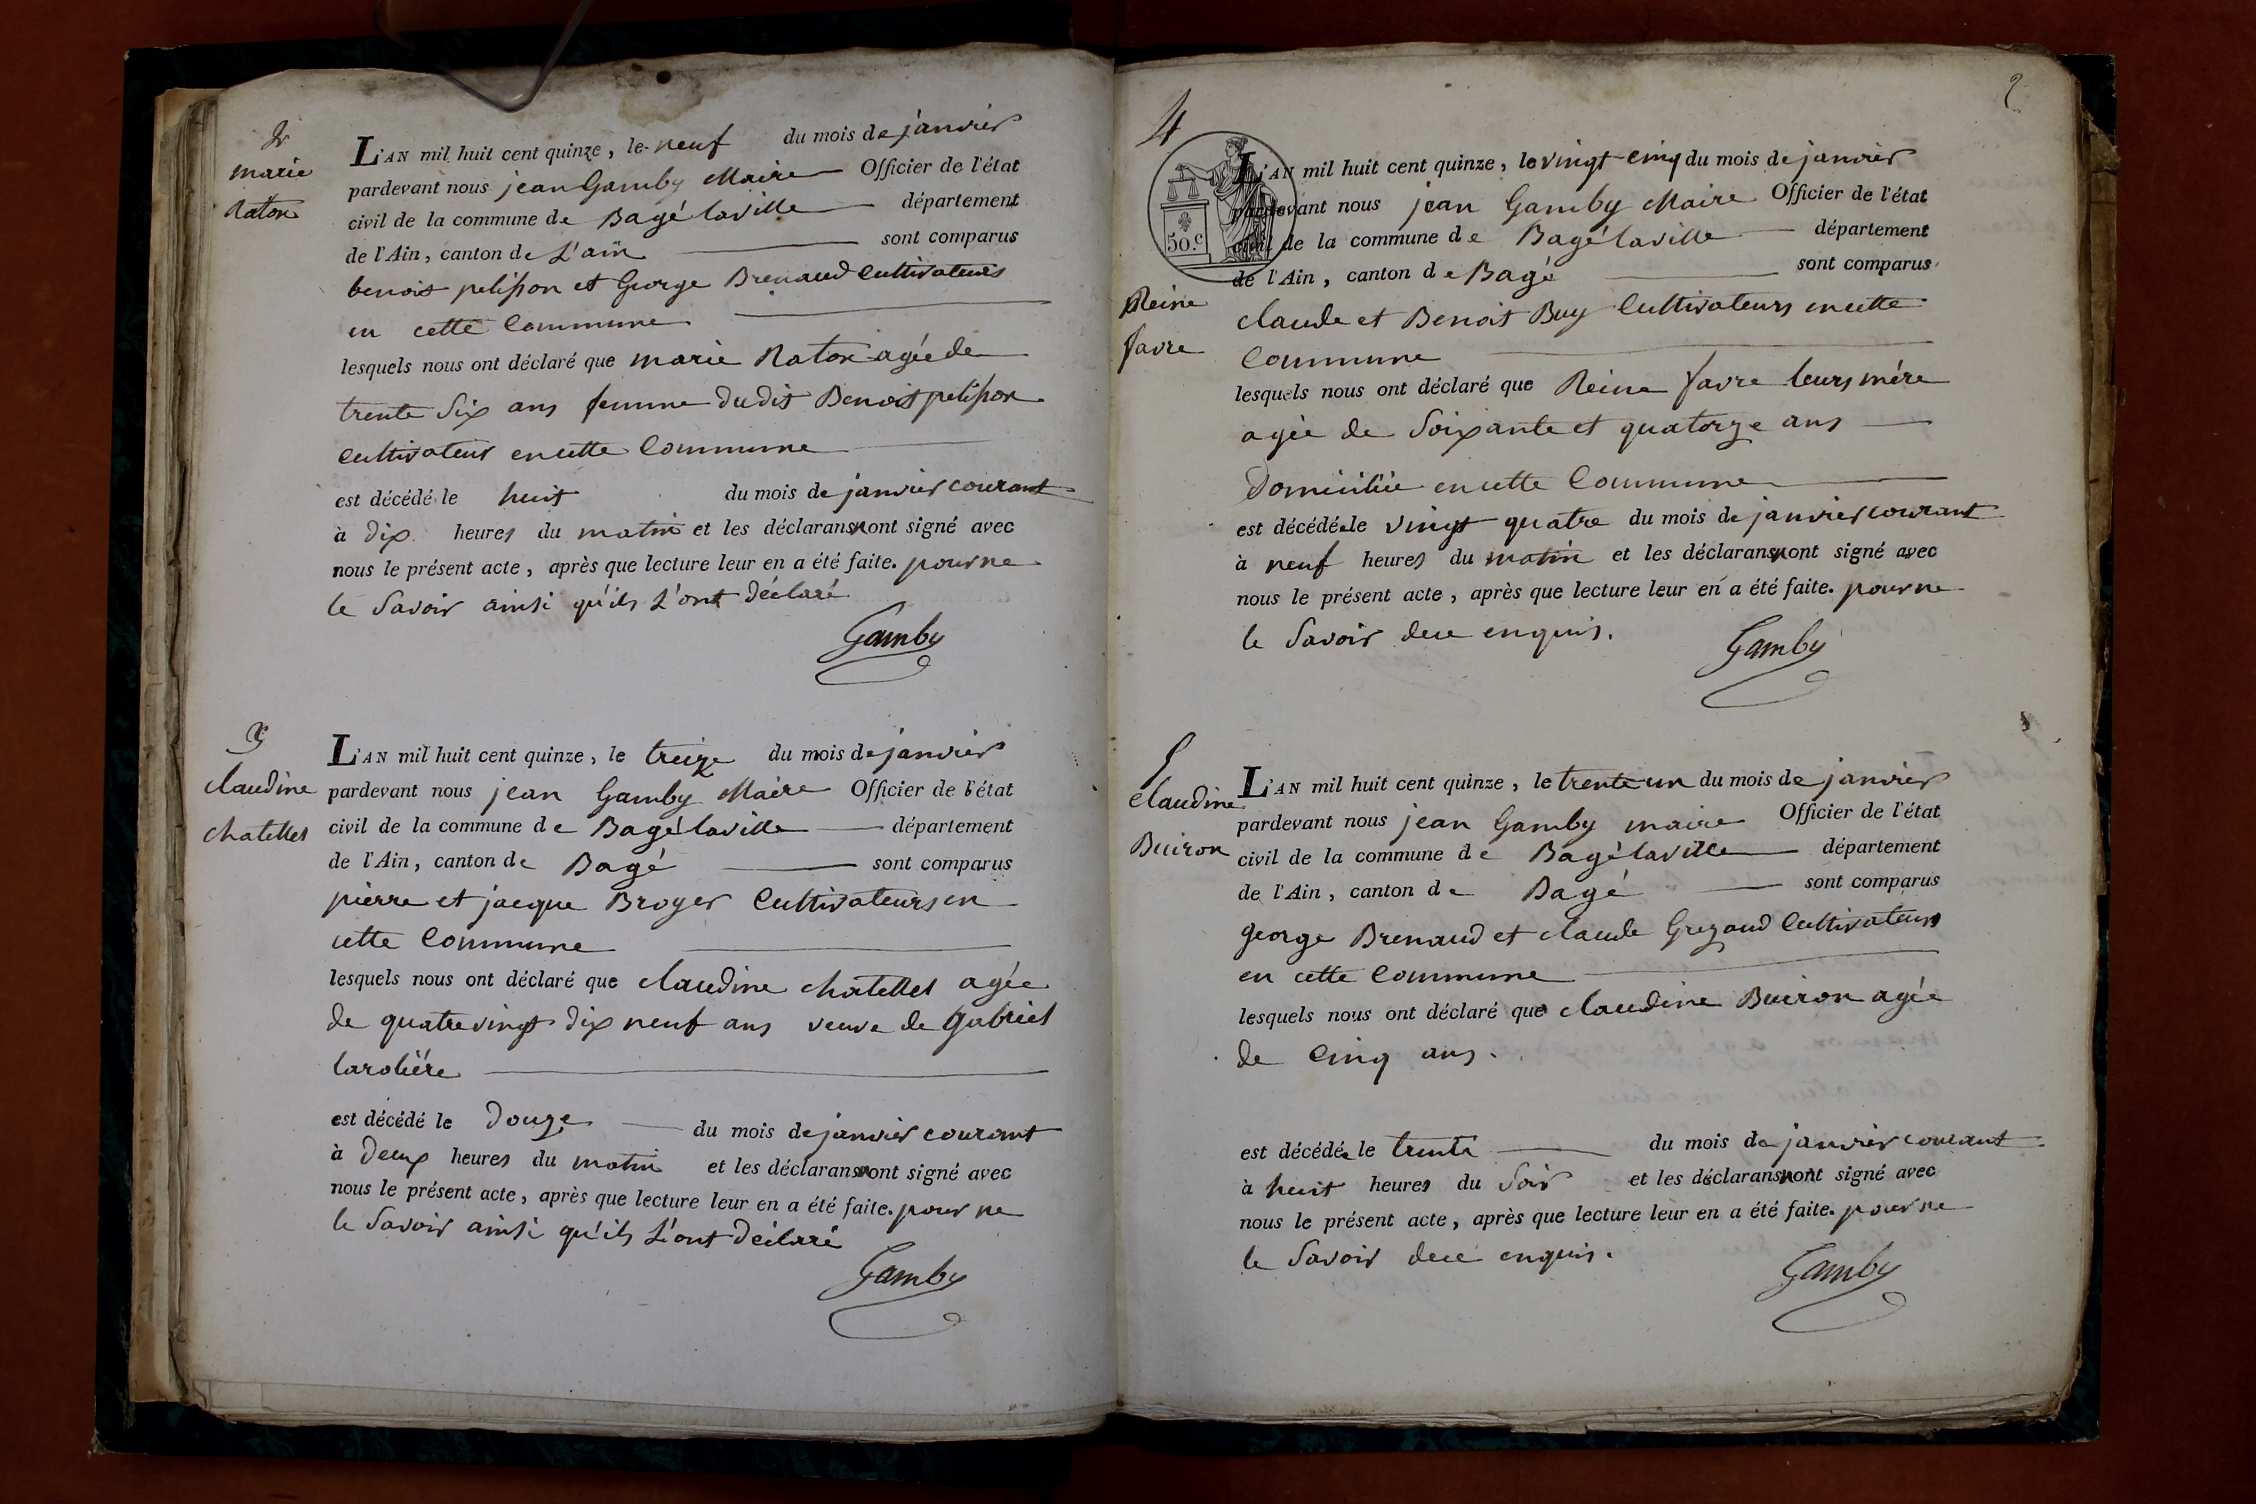 2
marie
Raton
L'AN mil huit cent quinze, le neuf du mois de janvier
pardevant nous jean Gamby Maire Officier de l'état
civil de la commune de Bagé laville département
de l'Ain, canton de L'ain sont comparus
benoit pelisson et George Brenaud Cultivateurs
en cette Commune
lesquels nous ont déclaré que marie Raton agée de
trente Six ans femme dudit Benoit pelisson
Cultivateur en cette Commune
est décédé le huit du mois de janvier courant
à dix heures du matin et les déclarans n'ont signé avec
nous le présent acte, après que lecture leur en a été faite. pour ne
le Savoir ainsi qu'ils L'ont déclaré
Gamby
3
claudine
chatellet
L'AN mil huit cent quinze, le treize du mois de janvier
pardevant nous jean Gamby Maire Officier de l'état
civil de la commune de Bagé laville département
de l'Ain, canton de Bagé sont comparus
pierre et jacque Broyer Cultivateurs en
cette Commune
lesquels nous ont déclaré que claudine chatellet agée
de quatre vingt dix neuf ans veuve de Gabriel
larolière
est décédé le Douze du mois de janvier courant
à Deux heures du matin et les déclarans n'ont signé avec
nous le présent acte, après que lecture leur en a été faite. pour ne
le Savoir ainsi qu'ils L'ont déclaré
Gamby
2
4
50.c
Reine
favre
L'AN mil huit cent quinze, le vingt-cinq du mois de janvier
pardevant nous jean Gamby Maire Officier de l'état
civil de la commune de Bagé laville département
de l'Ain, canton de Bagé sont comparus
claude et Benoit Buy Cultivateurs en cette
Commune
lesquels nous ont déclaré que Reine favre leurs mére
agée de Soixante et quatorze ans
Domiciliée en cette Commune
est décédée le vingt quatre du mois de janvier courant
à neuf heures du matin et les déclarans n'ont signé avec
nous le présent acte, après que lecture leur en a été faite. pour ne
le Savoir deue enquis.
Gamby
5
claudine
Buiron
L'AN mil huit cent quinze, le trente-un du mois de janvier
pardevant nous jean Gamby maire Officier de l'état
civil de la commune de Bagé laville département
de l'Ain, canton de Bagé sont comparus
george Brenaud et claude Grezaud Cultivateurs
en cette Commune
lesquels nous ont déclaré que claudine Buiron agée
de Cinq ans.
est décédée le trente du mois de janvier courant
à huit heures du Soir et les déclarans n'ont signé avec
nous le présent acte, après que lecture leur en a été faite. pour ne
le Savoir deue enquis.
Gamby